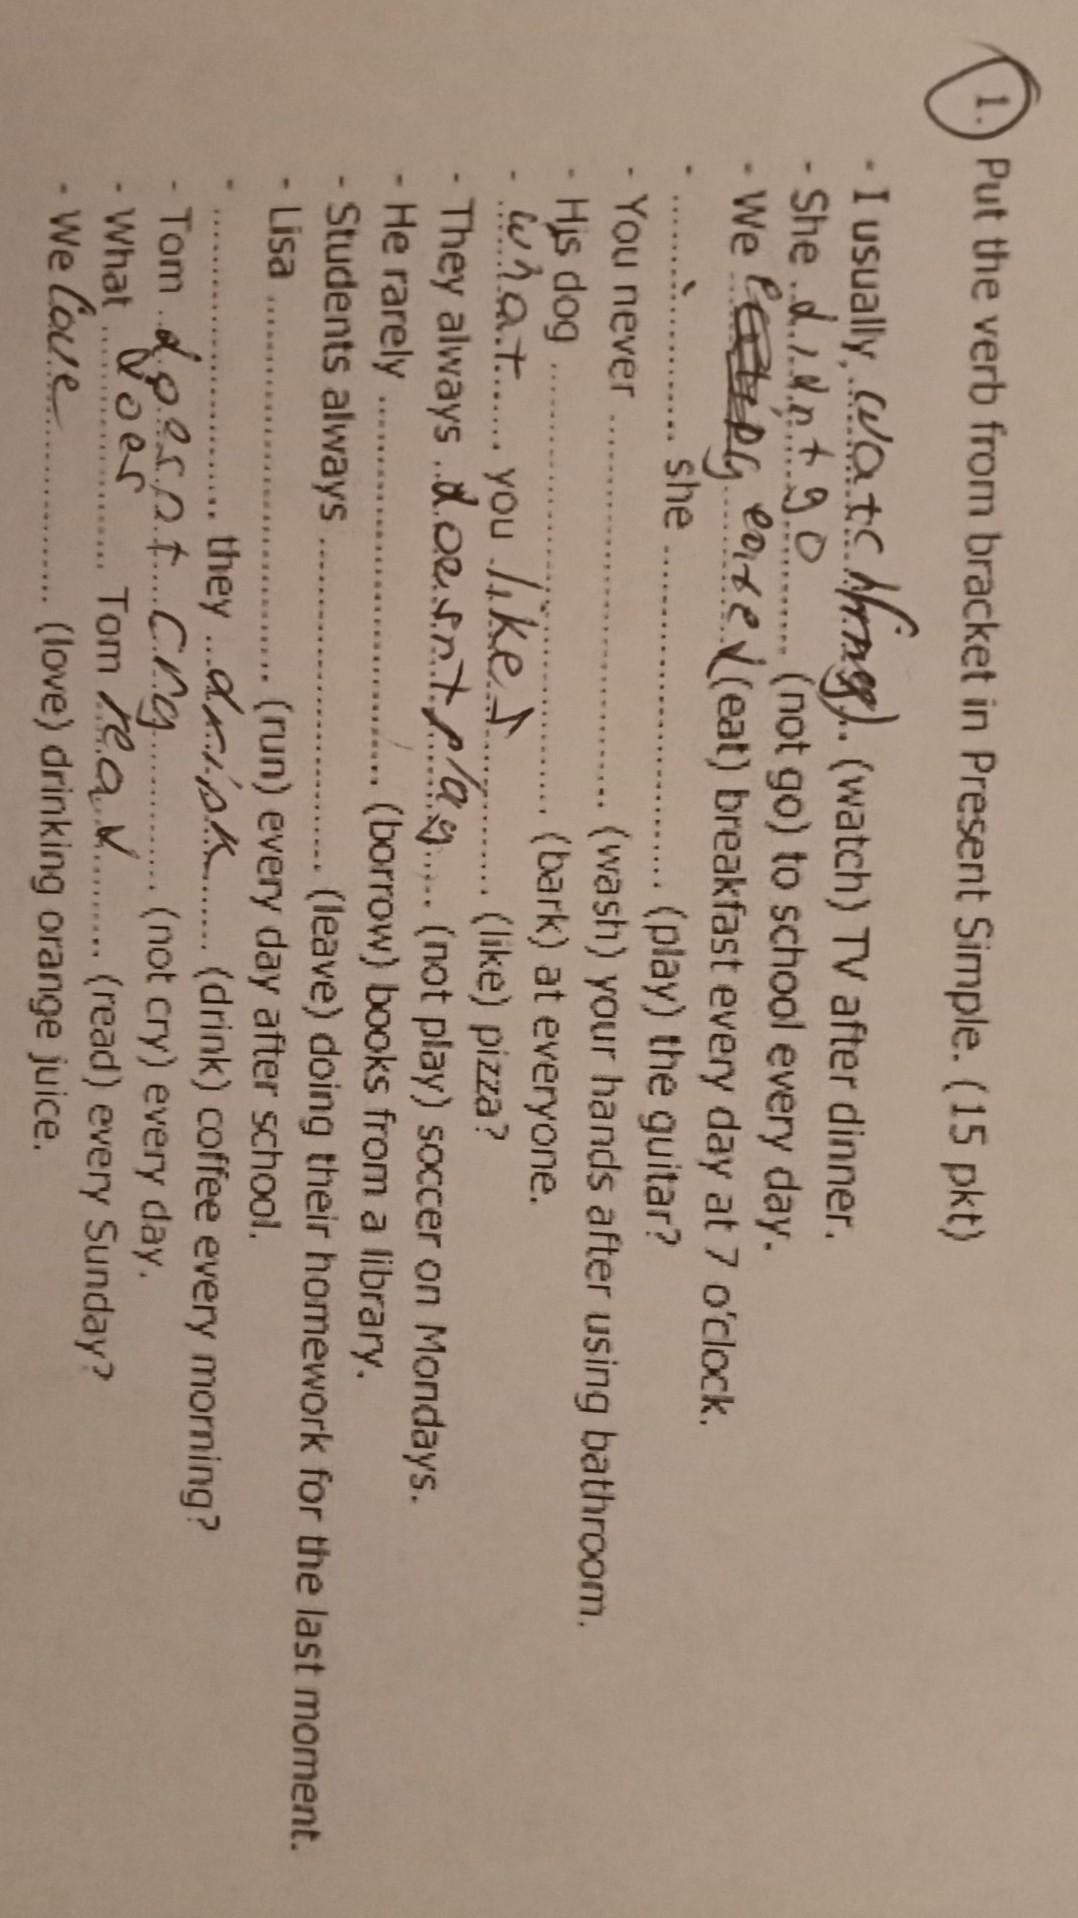 1. Put the verb from bracket in Present Simple. ( 15 pkt)
- I usually watching (watch) TV after dinner.
- She didn't go (not go) to school every day.
- We (eat) breakfast every day at 7 o'clock.
- .................... she .................... (play) the guitar?
- You never .................... (wash) your hands after using bathroom.
- His dog .................... (bark) at everyone.
- what you like (like) pizza?
- They always doesnt play (not play) soccer on Mondays.
- He rarely .................... (borrow) books from a library.
- Students always .................... (leave) doing their homework for the last moment.
- Lisa .................... (run) every day after school.
- .................... they drink (drink) coffee every morning?
- Tom doesnt cry (not cry) every day.
- What does Tom read (read) every Sunday?
- We love (love) drinking orange juice.